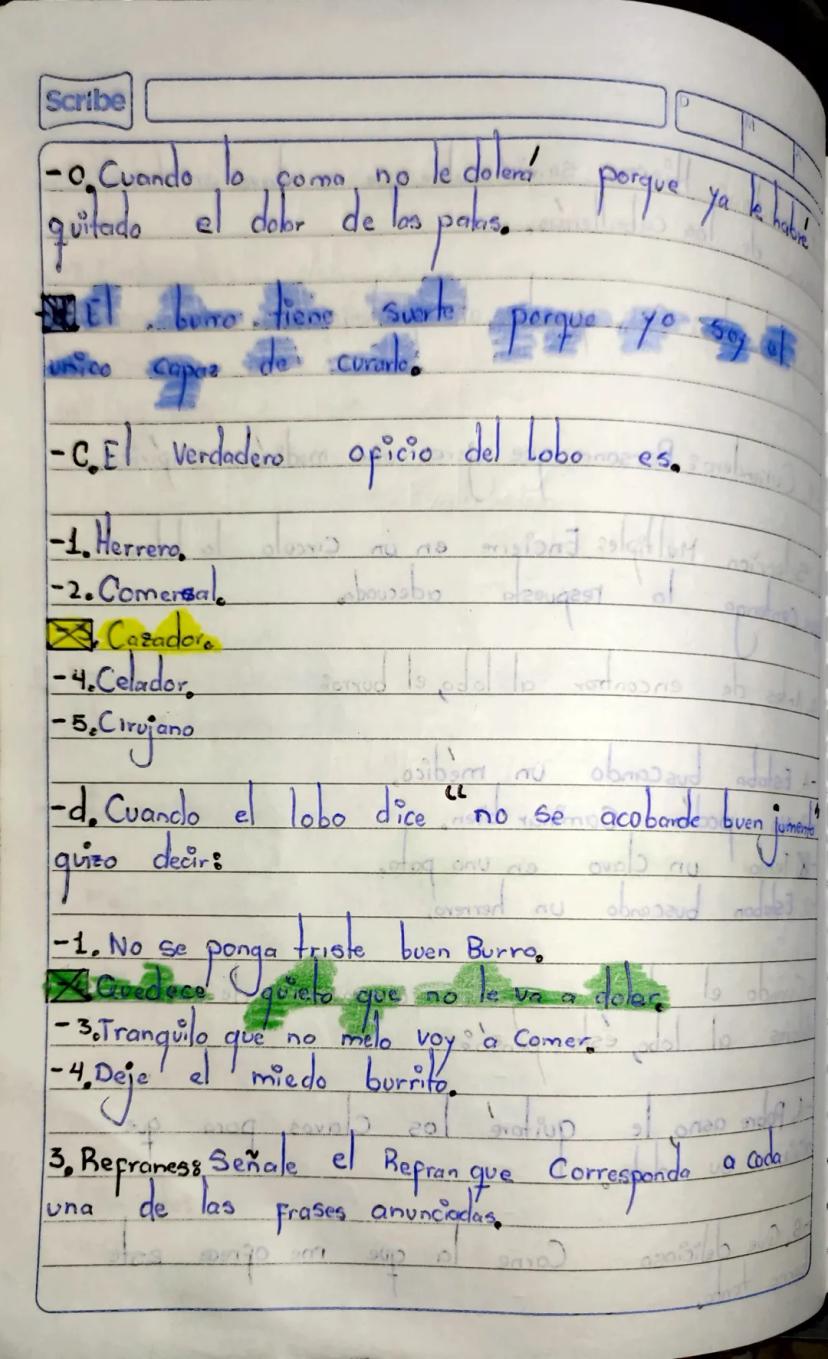 Scribe
-O. Cuando lo coma no le dolerá porque ya le habré
quitado el dolor de las patas.
El burro tiene suerte porque yo soy el
unico capaz de curarlo.
-C. El verdadero oficio del lobo es.
-1. Herrero.
-2. Comersal.
Cazador.
-4. Celador.
-5. Cirujano
-d. Cuando el lobo dice "no se acobarde buen jumento"
quizo decir:
-1. No se ponga triste buen Burro.
Quedece quieto que no le va a doler.
-3. Tranquilo que no melo voy a Comer.
-4. Deje el miedo burrito.
3. Refranes: Señale el Refran que Corresponda a cada
una de las frases anunciadas.